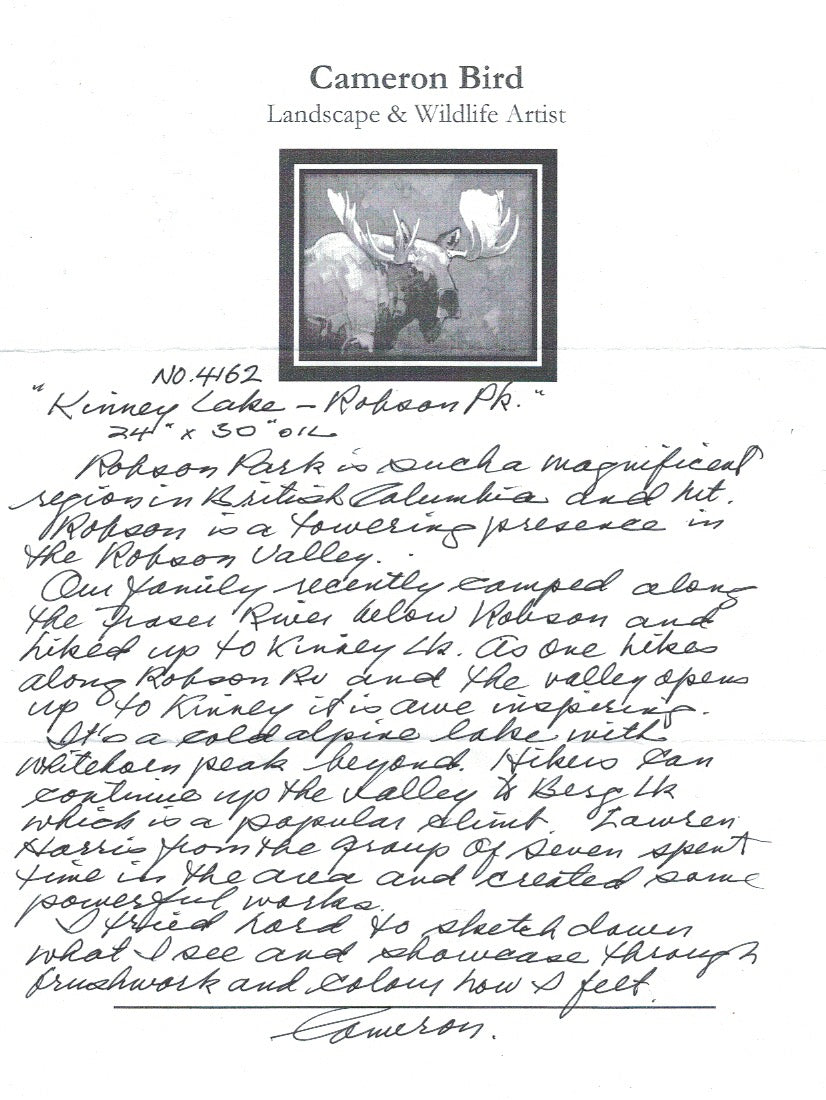 Cameron Bird
Landscape & Wildlife Artist
NO. 4162
"Kinney Lake – Robson Pk."
24" x 30" OIL
Robson Park is such a magnificent
region in British Columbia and Mt.
Robson is a towering presence in
the Robson Valley.
Our family recently camped along
the Fraser River below Robson and
hiked up to Kinney Lk. As one hikes
along Robson Rv and the valley opens
up to Kinney it is awe inspiring.
It's a cold alpine lake with
Whitehorn peak beyond. Hikers can
continue up the valley to Berg Lk
which is a popular climb. Lawren
Harris from the Group of Seven spent
time in the area and created some
powerful works.
I tried hard to sketch down
what I see and showcase through
brushwork and colour how I felt.
Cameron.